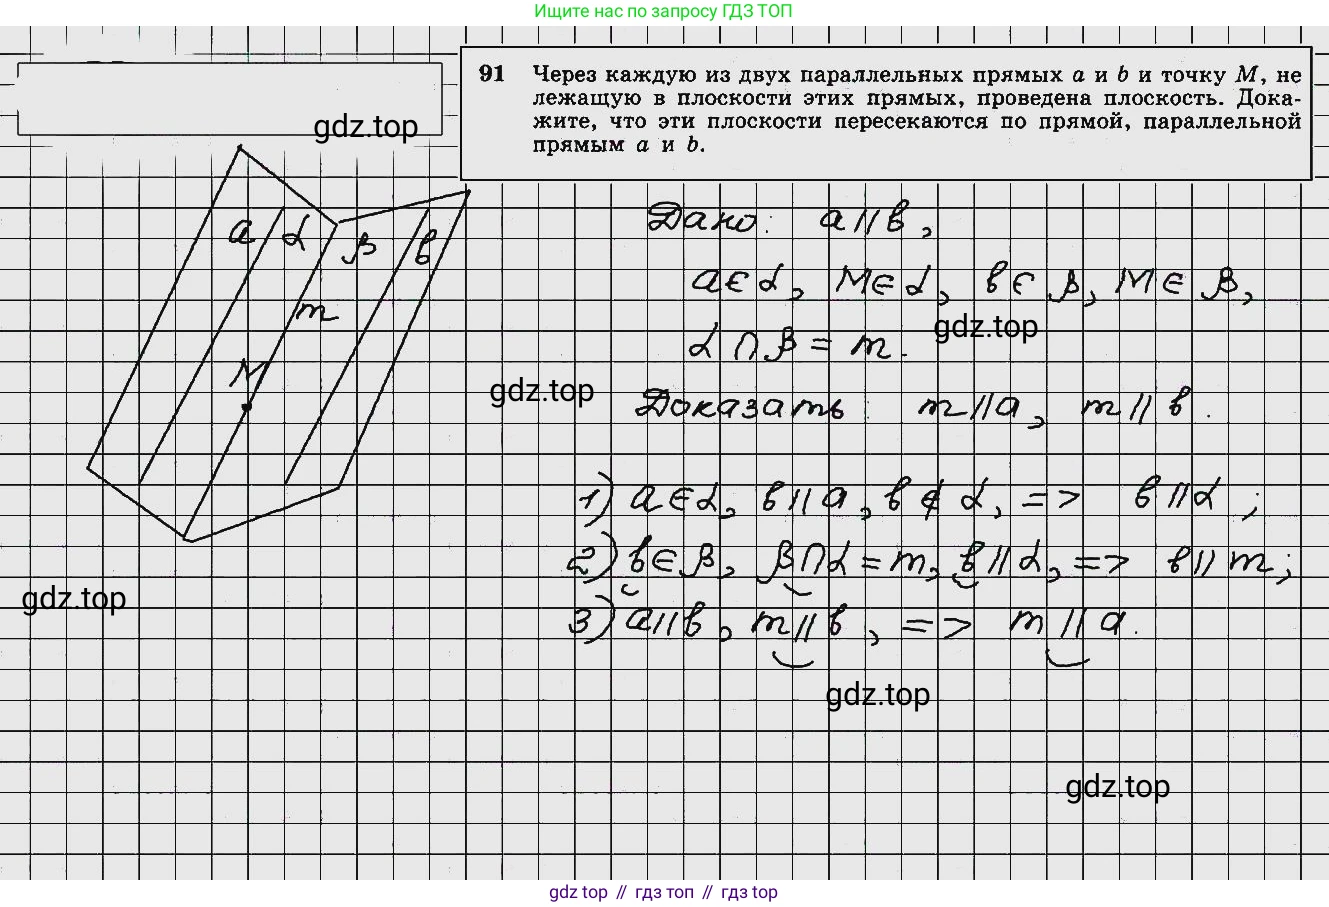 Ищите нас по запросу ГДЗ ТОП
91 Через каждую из двух параллельных прямых a и b и точку M, не
лежащую в плоскости этих прямых, проведена плоскость. Дока-
жите, что эти плоскости пересекаются по прямой, параллельной
прямым a и b.
gdz.top
a α β b
m
M
Дано: a∥b,
a∈α, M∈α, b∈β, M∈β,
gdz.top
α∩β=m.
gdz.top
Доказать m∥a, m∥b.
1) a∈α, b∥a, b∉α, => b∥α;
2) b∈β, β∩α=m, b∥α, => b∥m;
gdz.top
3) a∥b, m∥b, => m∥a.
gdz.top
gdz.top
gdz top // гдз топ // гдз top